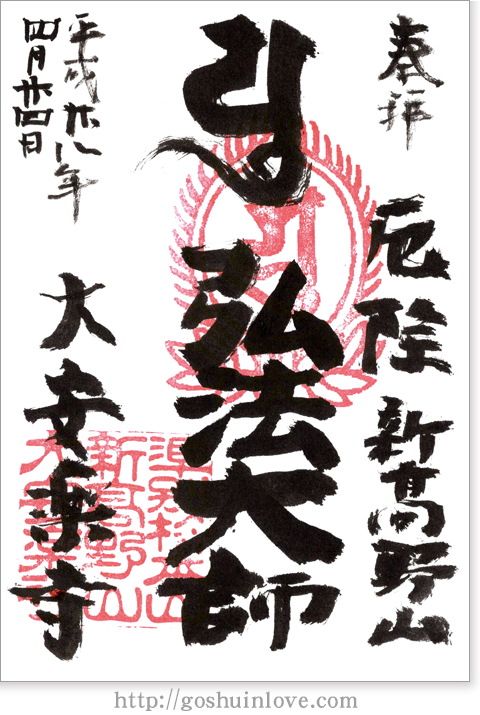 奉拝
厄除 新高野山
弘法大師
大安楽寺
平成廿八年
四月廿四日
新高野山
http://goshuinlove.com